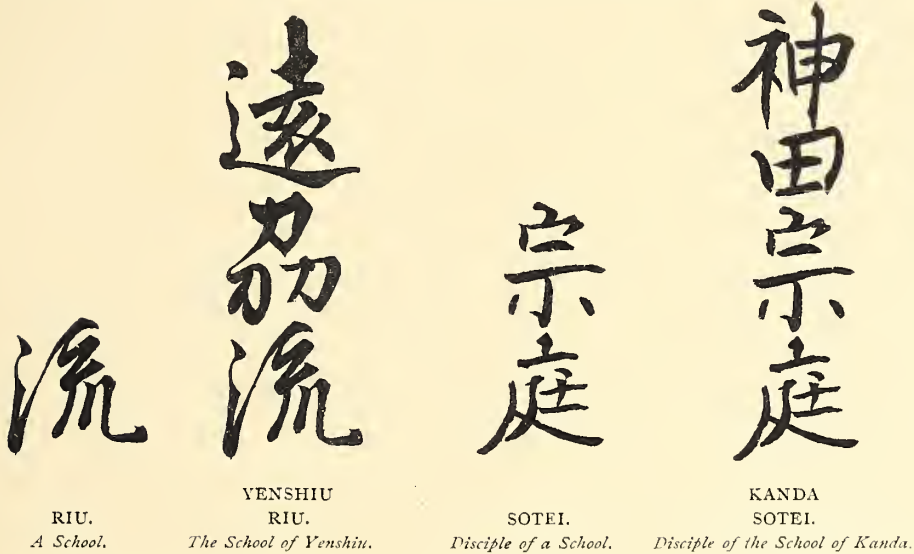 流
遠刕流
宗庭
神田宗庭
RIU.
A School.
YENSHIU
RIU.
The School of Yenshiu.
SOTEI.
Disciple of a School.
KANDA
SOTEI.
Disciple of the School of Kanda.